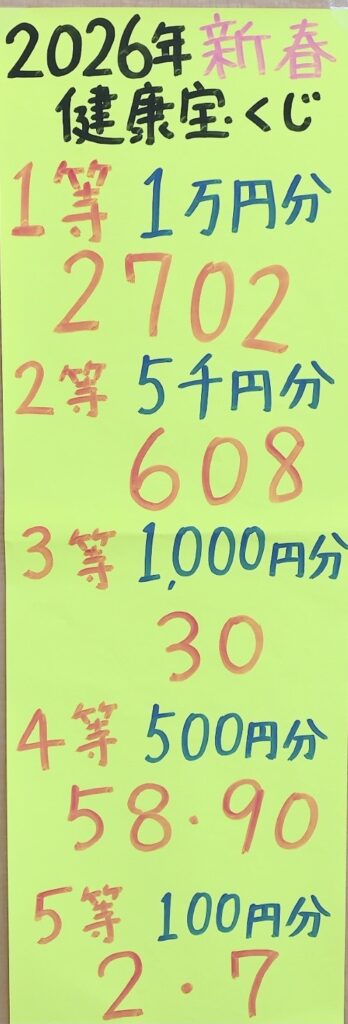 2026年新春
健康宝くじ
1等 1万円分
2702
2等 5千円分
608
3等 1,000円分
30
4等 500円分
58・90
5等 100円分
2・7